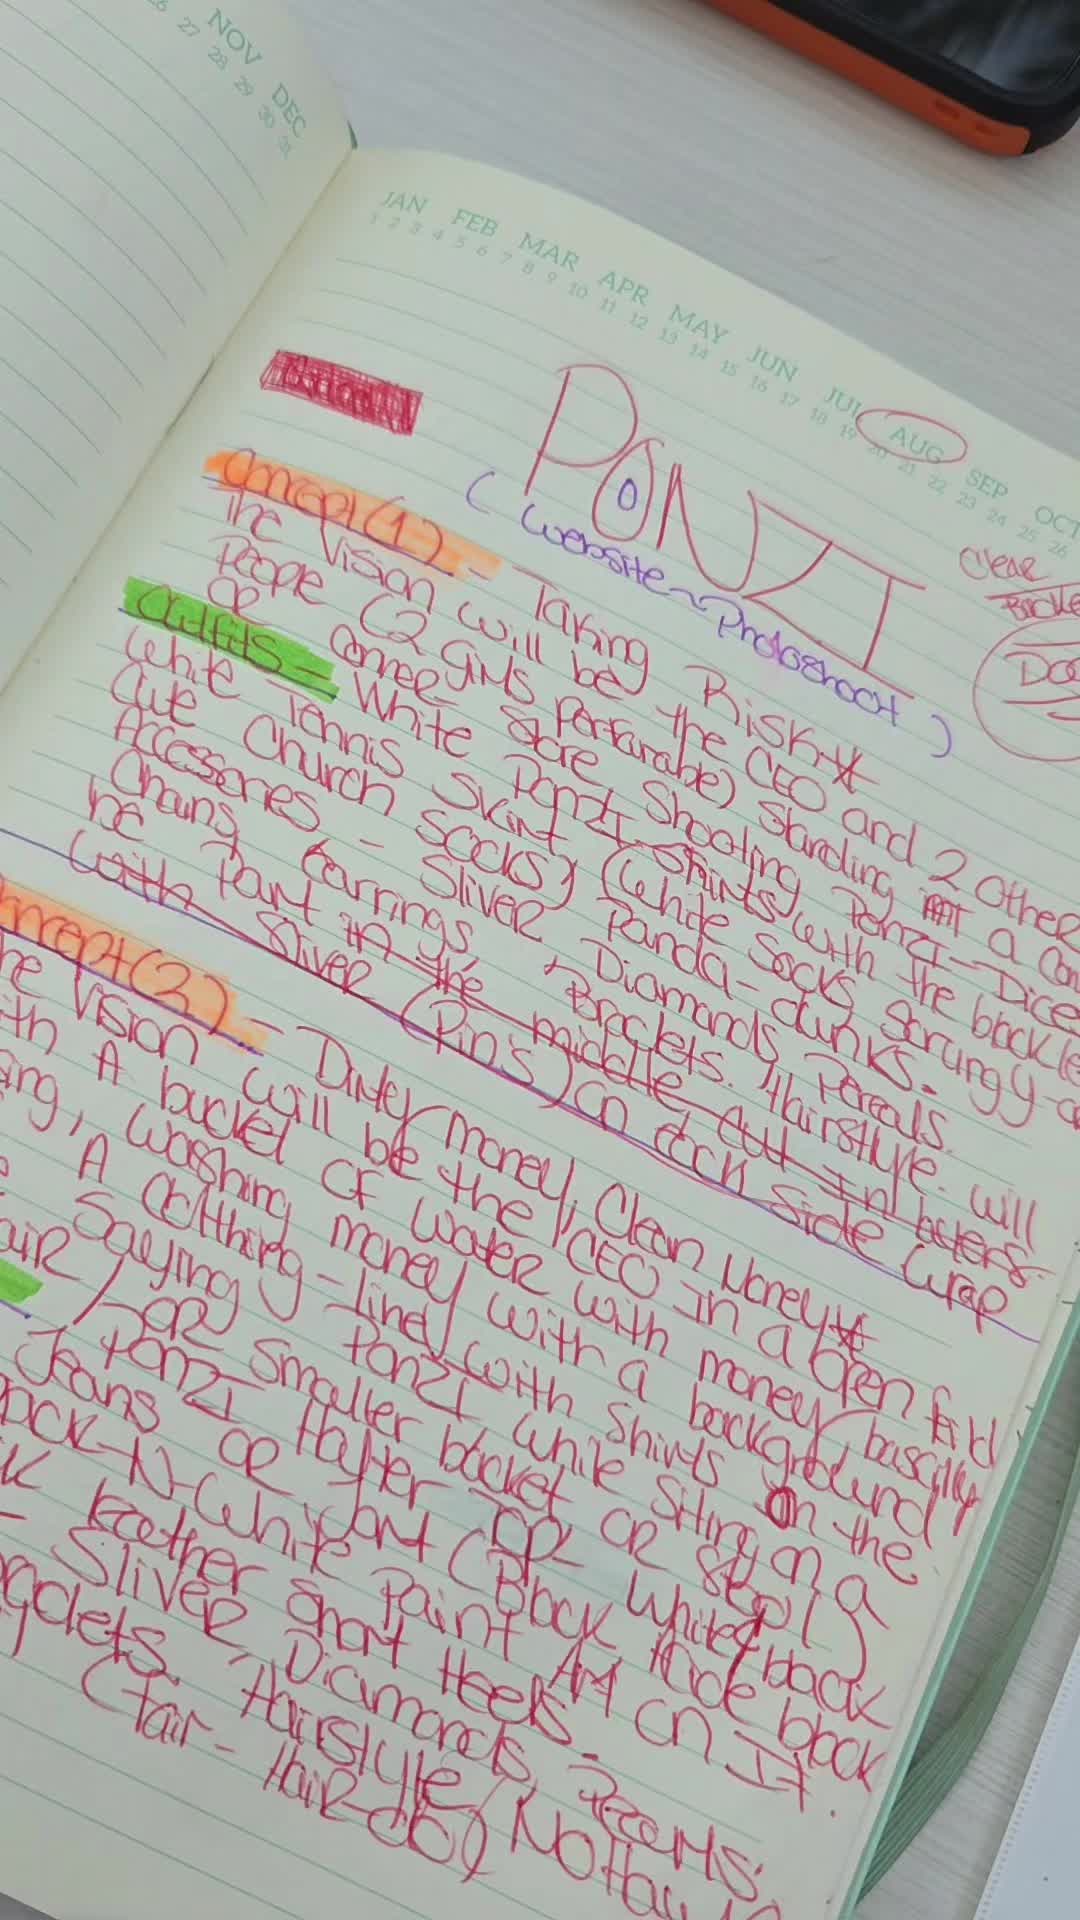 26 27
NOV
28 29
DEC
30 31
JAN FEB MAR APR MAY JUN JUL AUG SEP OCT
1 2 3 4 5 6 7 8 9 10 11 12 13 14 15 16 17 18 19 20 21 22 23 24 25 26
PONZI
(website ~ Photoshoot)
Clear
Concept (1) - Taking Risk*
The Vision will be the CEO and 2 other
People (2 Girls Perfurable) standing at a
or corner store shooting Ponzi - Dice
Outfits - White Ponzi-Shirts with the black
White Tennis Skirt (white socks scrungy
cute church socks) Panda-dunks.
Accesseries - Sliver Diamonds, Pereals.
Chains, Earrings, Braclets. Hairstlye. Will
be Part in the middle cut in layers.
with Sliver (Pins) on each Side Wrap
Concept (2) - Dirty money, Clean Money*
The Vision will be the CEO in a open field
with A bucket of water with money basiclly
washing money with a background
A Clothing-line with shirts on the
Saying Ponzi while siting on a
or smaller bucket or stool)
Ponzi Halter Top - White & black
Jeans or Jort (Black Hide black
-N-White Paint Art on It.
leather short Heels -
Sliver, Diamonds, Pearls.
Hairstlye, No
Hair-do)